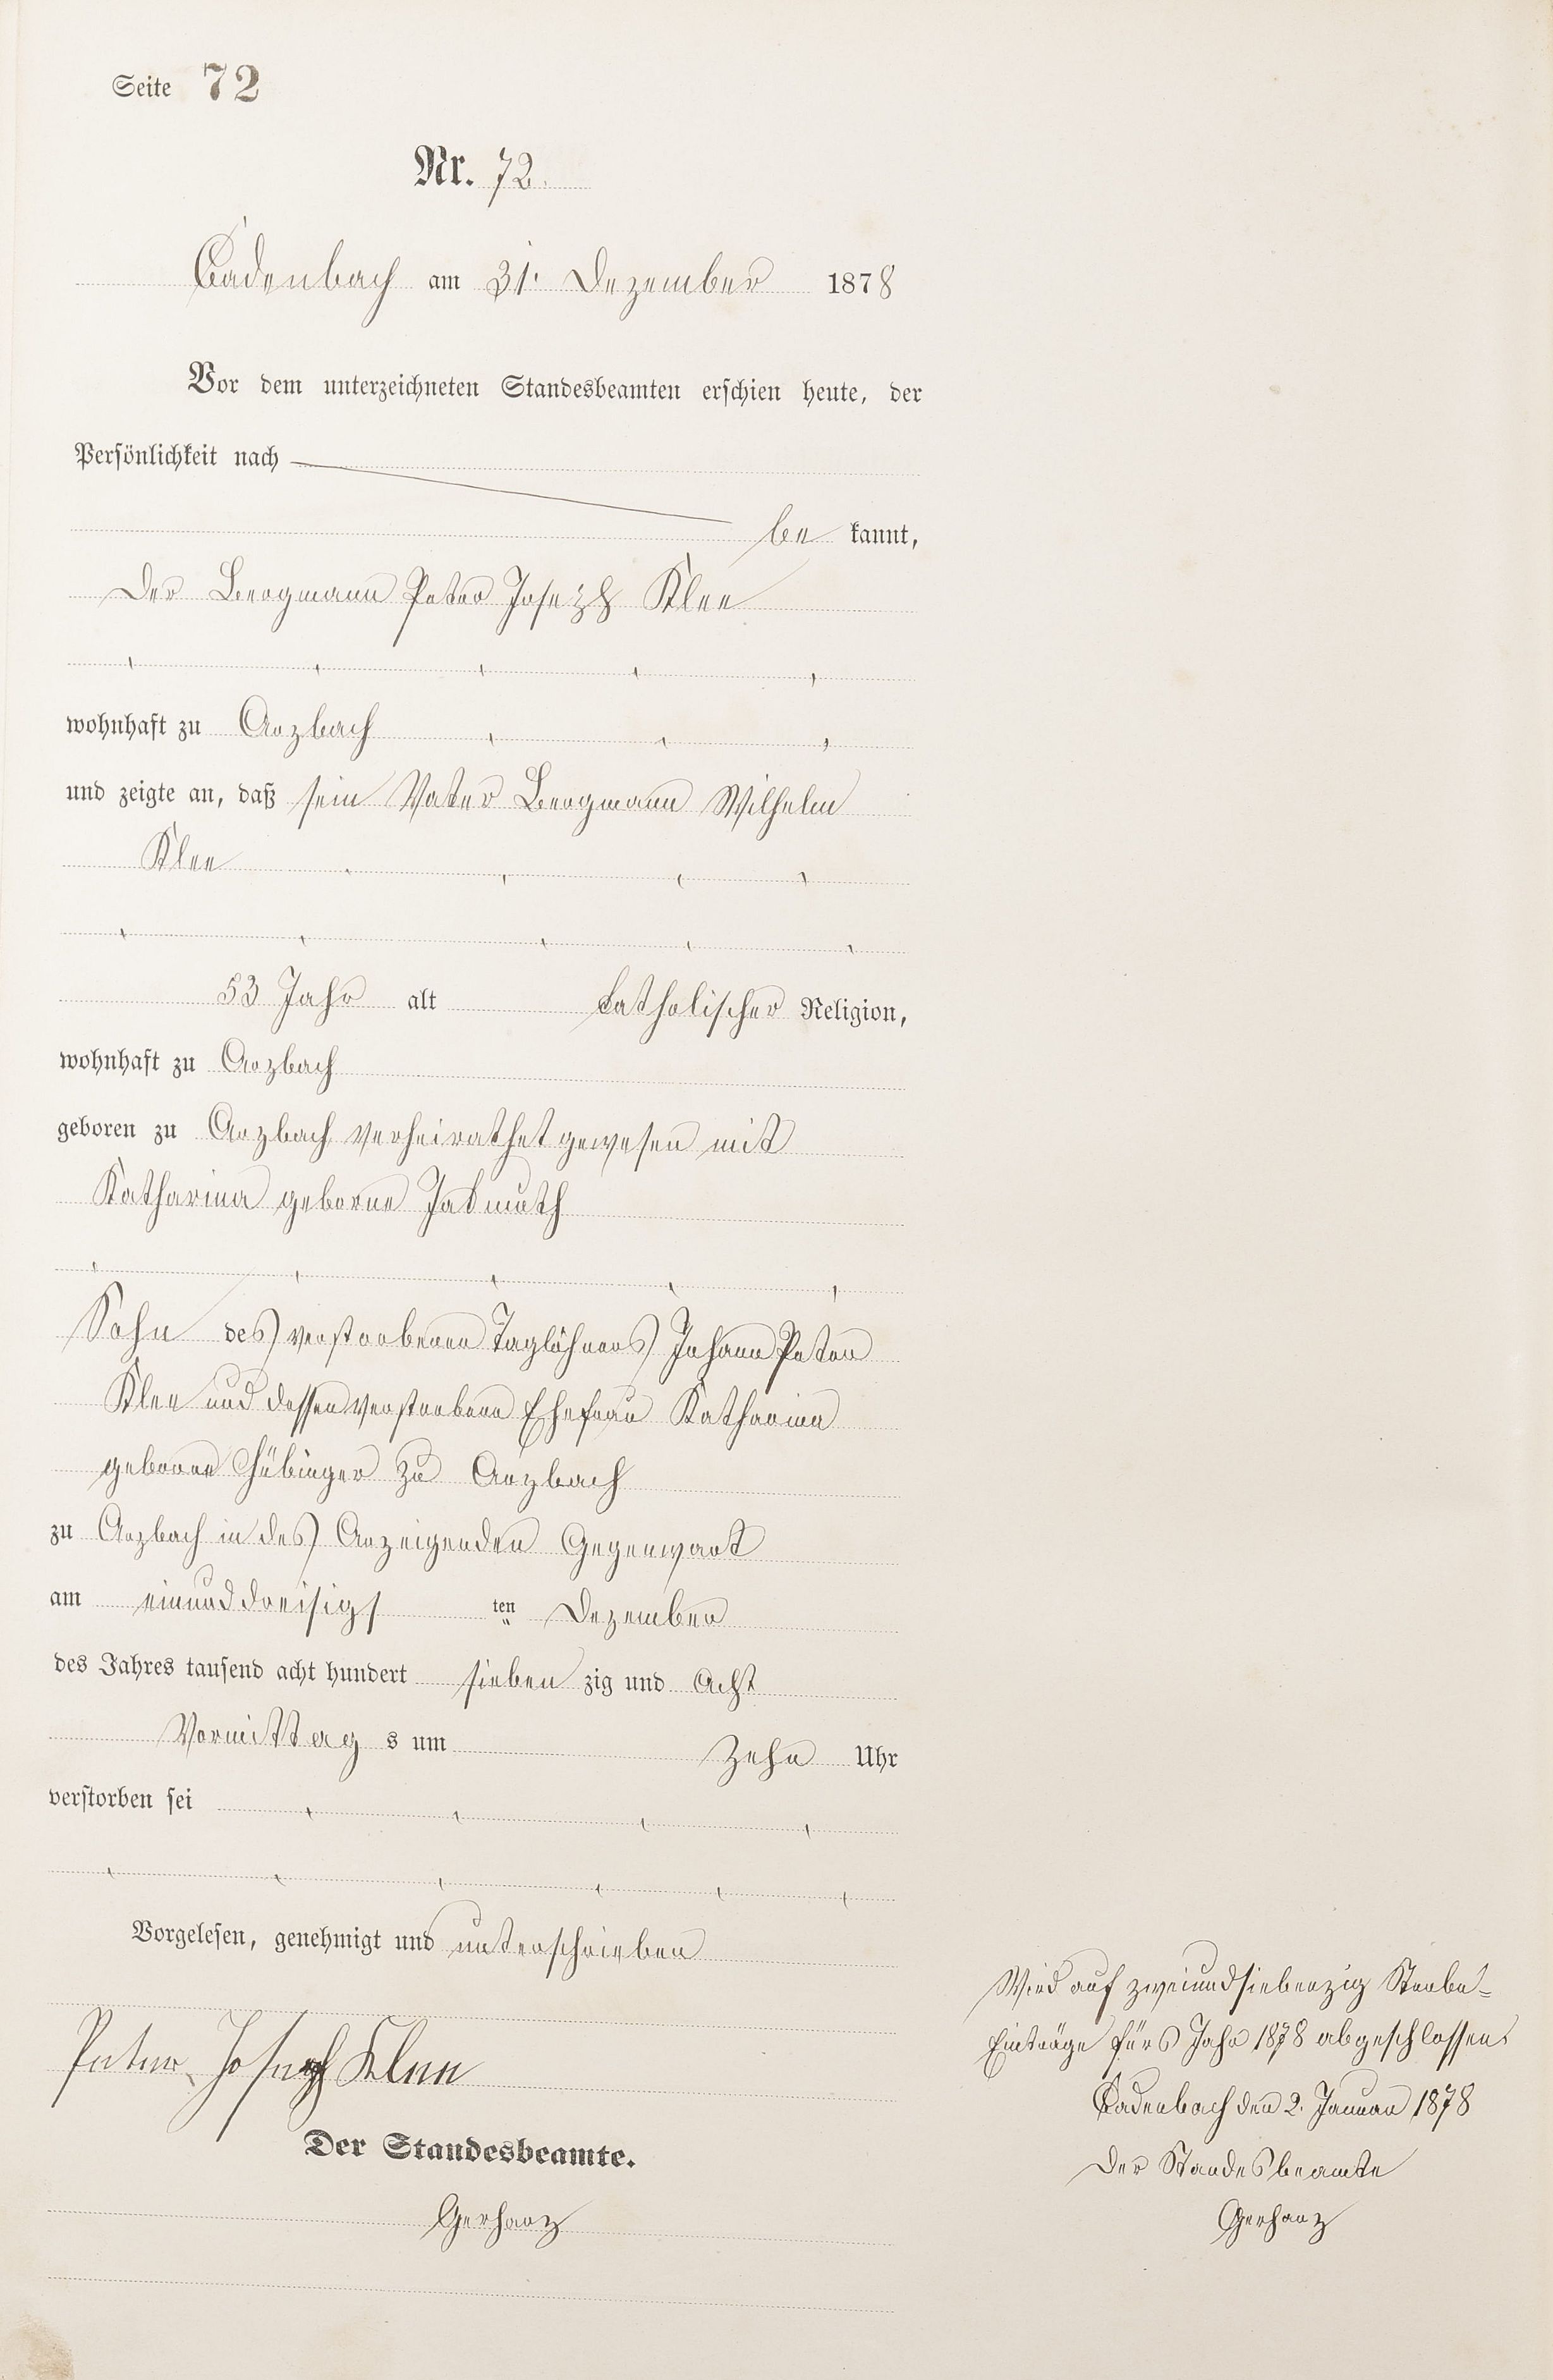 Seite 72
Nr. 72.
Cadenbach am 31. Dezember 1878
Vor dem unterzeichneten Standesbeamten erschien heute, der
Persönlichkeit nach
be kannt,
Der Bergmann Peter Joseph Klee
wohnhaft zu Arzbach
und zeigte an, daß sein Vater Bergmann Wilhelm
Klee
53 Jahr alt katholischer Religion,
wohnhaft zu Arzbach
geboren zu Arzbach verheirathet gewesen mit
Katharina geborne Jakmuth
Sohn des verstorbenen Taglöhners Johann Peter
Klee und dessen verstorbene Ehefrau Katharina
geborne Hübinger zu Arzbach
zu Arzbach in des Anzeigenden Gegenwart
am einunddreisigs ten Dezember
des Jahres tausend acht hundert sieben zig und Acht
Vormittag s um Zehn Uhr
verstorben sei
Vorgelesen, genehmigt und unterschrieben
Peter Joseph Klee
Der Standesbeamte.
Gerharz
Wird auf zweiundsiebenzig Sterbe-
Einträge fürs Jahr 1878 abgeschlossen.
Cadenbach den 2. Januar 1878
Der Standesbeamte
Gerharz